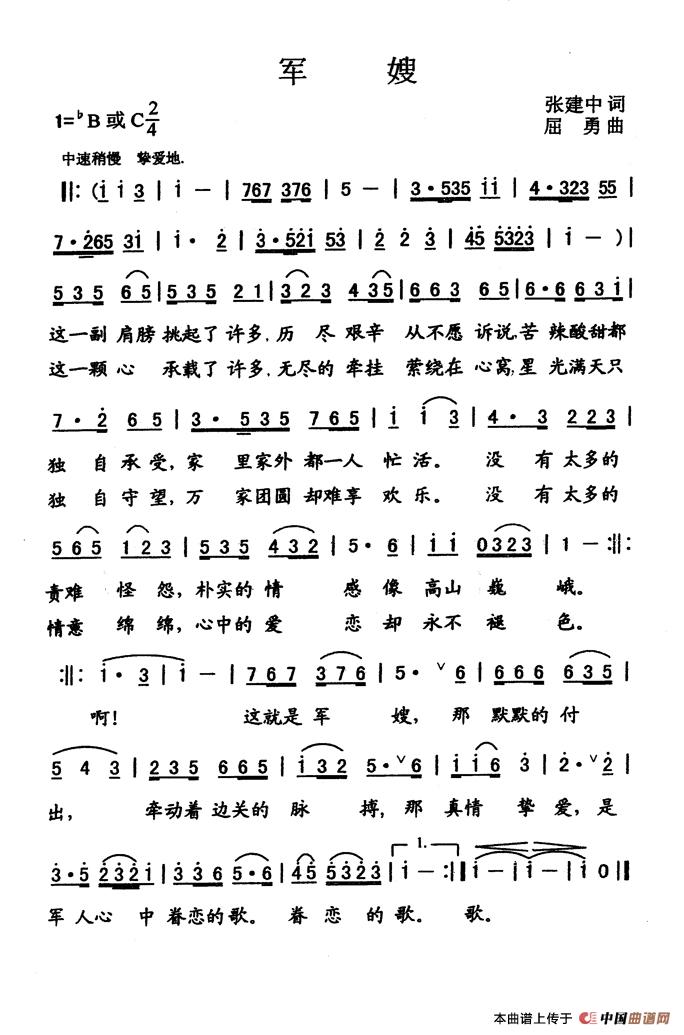 军 嫂
张建中 词
1=♭B 或 C 2/4
屈 勇 曲
中速稍慢 挚爱地.
‖: (i i 3 | i － | 767 376 | 5 － | 3·535 i i | 4·323 55 |
7·265 3i | i· 2 | 3·52i 53 | 2 2 3 | 45 5323 | i － )|
5 3 5 6 5 | 5 3 5 2 1 | 3 2 3 4 3 5 | 6 6 3 6 5 | 6·6 6 3 i |
这一副 肩膀 挑起了 许多, 历 尽 艰辛 从不愿 诉说,苦 辣酸甜都
这一颗 心 承载了 许多,无尽的 牵挂 萦绕在 心窝,星 光满天只
7· 2 6 5 | 3· 5 3 5 7 6 5 | i i 3 | 4· 3 2 2 3 |
独 自 承 受, 家 里家外 都一人 忙 活。 没 有 太多的
独 自 守 望, 万 家团圆 却难享 欢 乐。 没 有 太多的
5 6 5 1 2 3 | 5 3 5 4 3 2 | 5· 6 | i i 0323 | 1 － :‖:
责难 怪 怨, 朴实的 情 感 像 高山 巍 峨。
情意 绵 绵, 心中的 爱 恋 却 永不 褪 色。
:‖: i· 3 | i － | 7 6 7 3 7 6 | 5· ∨ 6 | 6 6 6 6 3 5 |
啊! 这就是 军 嫂, 那 默默的 付
5 4 3 | 2 3 5 6 6 5 | i 3 2 5·∨6 | i i 6 3 | 2·∨2 |
出, 牵动着 边关的 脉 搏, 那 真情 挚 爱, 是
3·5 2 3 2 i | 2 2 3 6 5·6 | 4 5 5 3 2 3 | 1. i － :‖ i － | i － | i 0 ‖
军 人心 中 眷恋的 歌。 眷 恋 的 歌。 歌。
本曲谱上传于 中国曲谱网